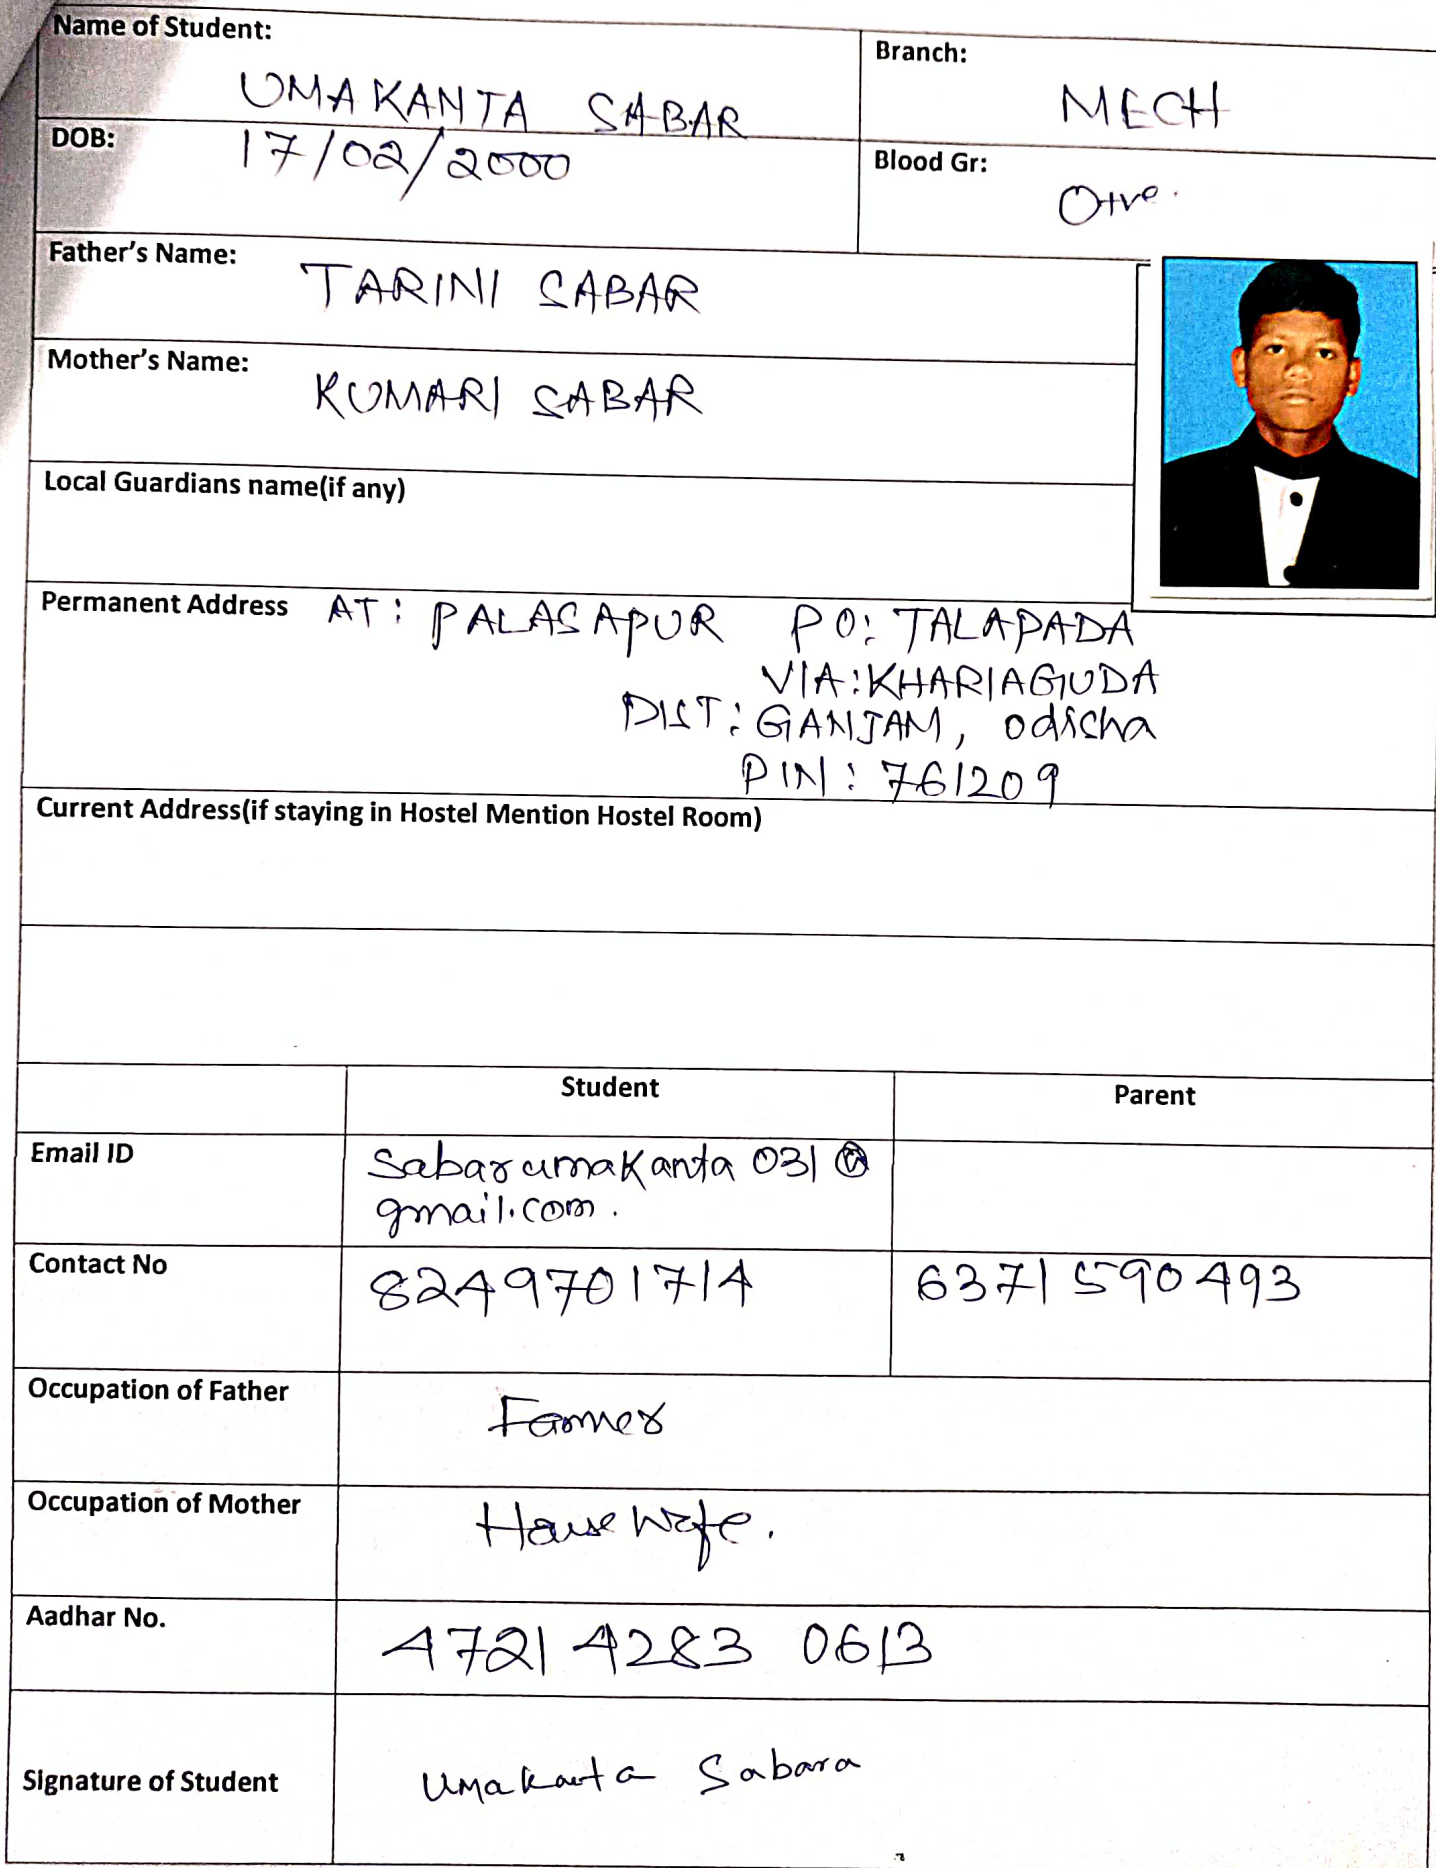 Name of Student:
UMAKANTA SABAR
Branch:
MECH
DOB:
17/02/2000
Blood Gr:
O+ve.
Father's Name:
TARINI SABAR
Mother's Name:
KUMARI SABAR
Local Guardians name(if any)
Permanent Address AT: PALASAPUR PO: TALAPADA
VIA: KHARIAGUDA
DIST: GANJAM, Odisha
PIN: 761209
Current Address(if staying in Hostel Mention Hostel Room)
Student Parent
Email ID
sabarumakanta031@
gmail.com.
Contact No
8249701714
6371590493
Occupation of Father
Farmer
Occupation of Mother
House Wife.
Aadhar No.
4721 4283 0613
Signature of Student
Umakanta Sabara